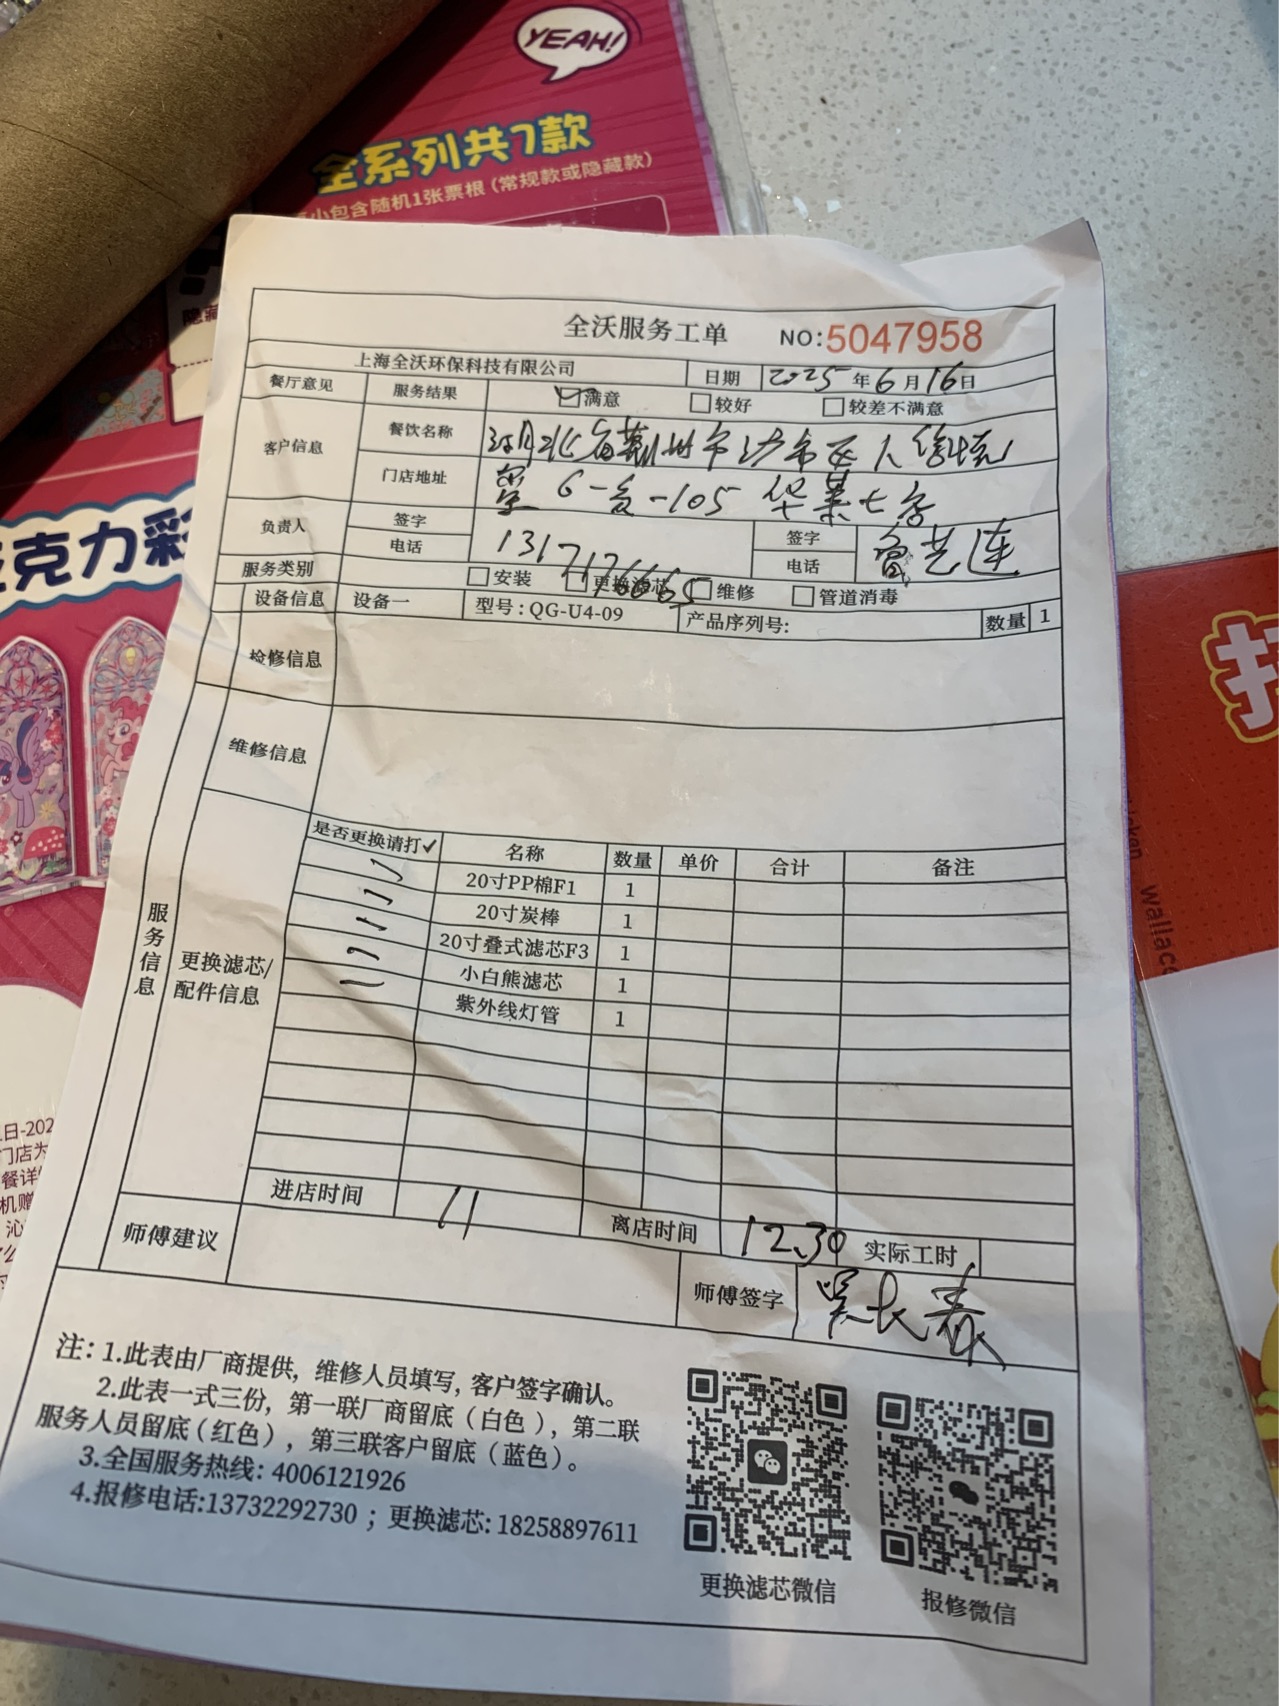 YEAH!
全系列共7款
小包含随机1张票根(常规款或隐藏款)
隐藏
克力彩
全沃服务工单 NO:5047958
上海全沃环保科技有限公司 日期 2025年6月16日
餐厅意见 服务结果 满意 较好 较差不满意
客户信息 餐饮名称 湖北省荆州市沙市区人信
门店地址 6-1-105 华莱士店
负责人 签字 签字 芝连
电话 13171766665 电话
服务类别 安装 更换滤芯 维修 管道消毒
设备信息 设备一 型号:QG-U4-09 产品序列号: 数量 1
检修信息
维修信息
服务信息
更换滤芯/配件信息
是否更换请打✓ 名称 数量 单价 合计 备注
✓ 20寸PP棉F1 1
✓ 20寸炭棒 1
✓ 20寸叠式滤芯F3 1
✓ 小白熊滤芯 1
紫外线灯管 1
进店时间 11 离店时间 12.30 实际工时
师傅建议 师傅签字 吴长春
注:1.此表由厂商提供,维修人员填写,客户签字确认。
2.此表一式三份,第一联厂商留底(白色),第二联
服务人员留底(红色),第三联客户留底(蓝色)。
3.全国服务热线:4006121926
4.报修电话:13732292730;更换滤芯:18258897611
更换滤芯微信 报修微信
日-202
门店为
餐详
机赠
沁
wallace